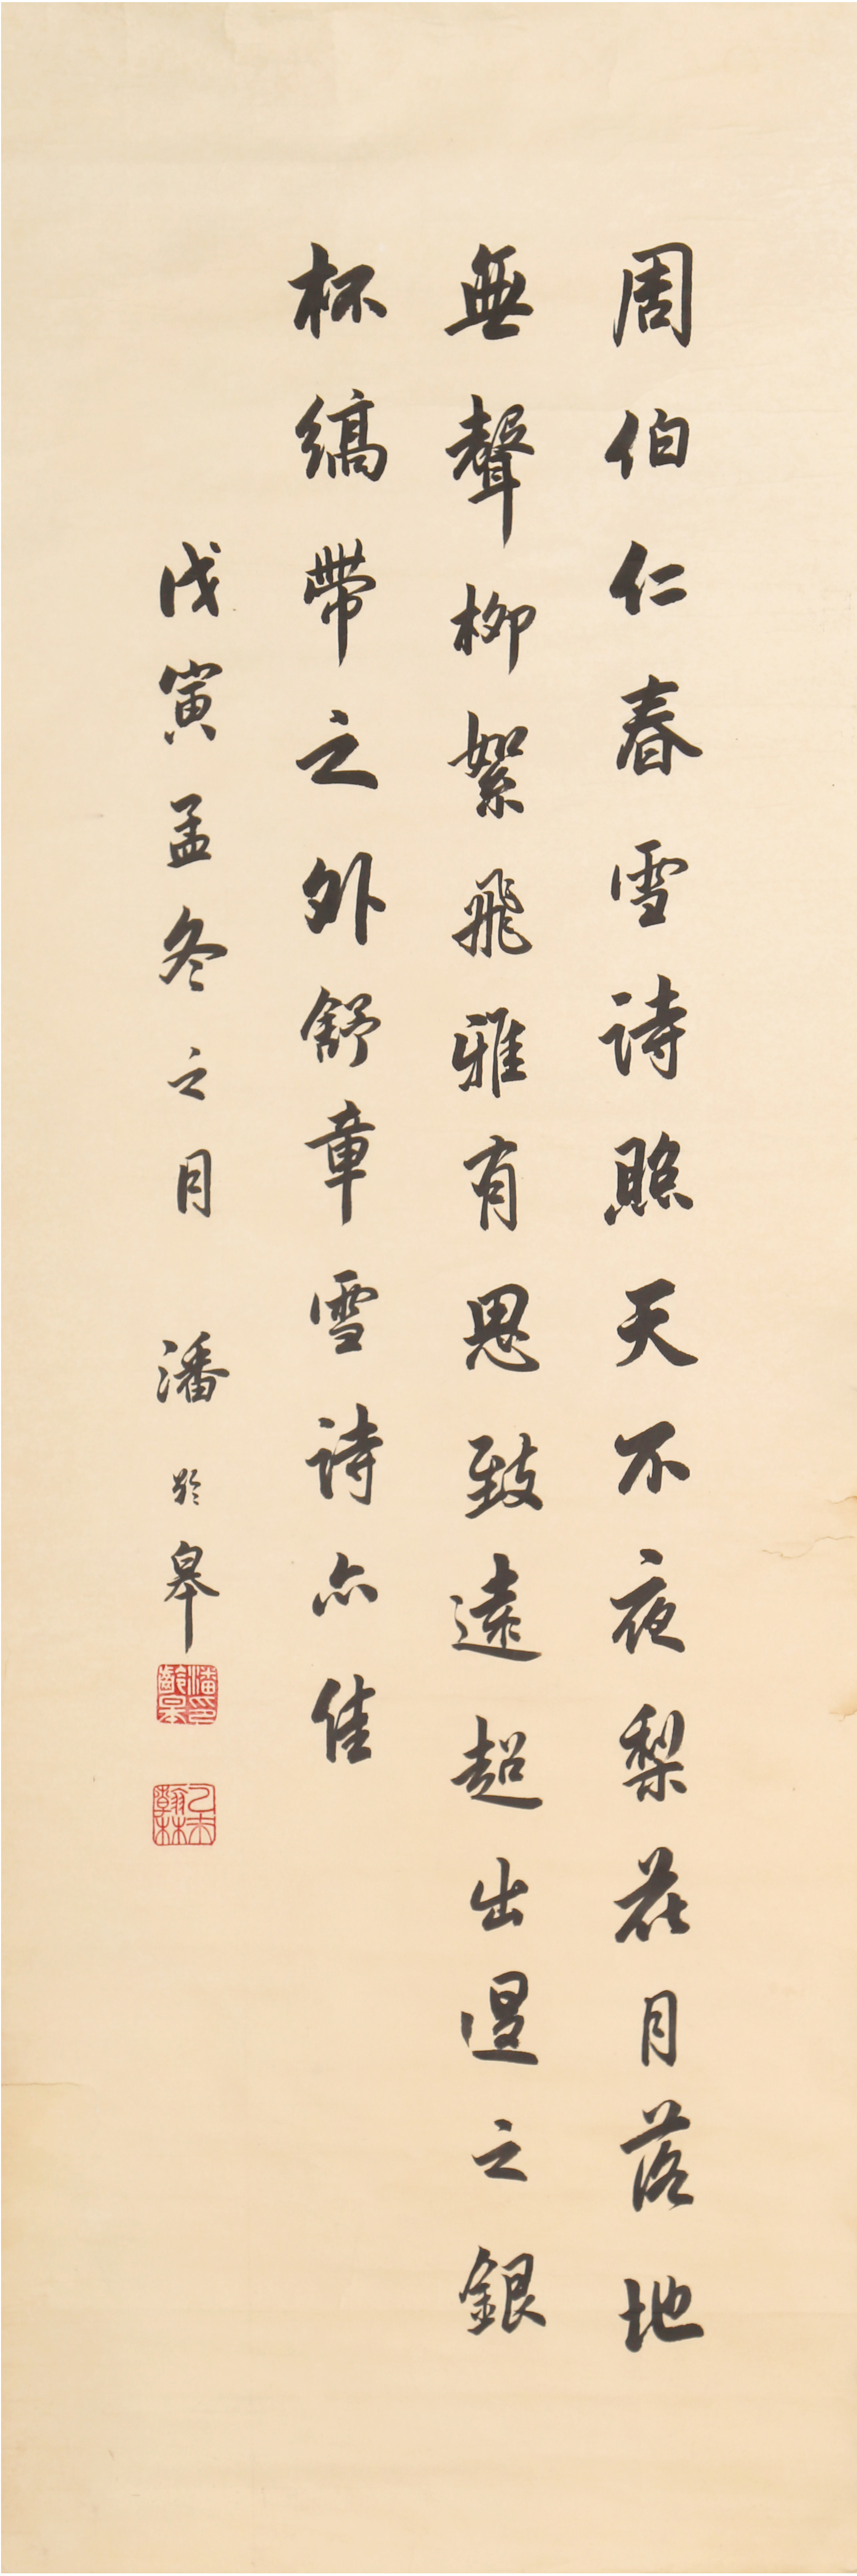 周伯仁春雪詩照天不夜梨花月落地
無聲柳絮飛雅有思致遠超出退之銀
杯縞帶之外舒章雪詩亦佳
戊寅孟冬之月 潘齡皋
潘印齡皋
乙未翰林